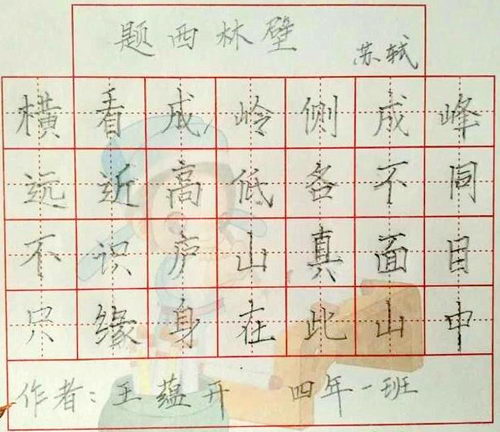 题西林壁
苏轼
横看成岭侧成峰
远近高低各不同
不识庐山真面目
只缘身在此山中
作者：王蕴开 四年一班